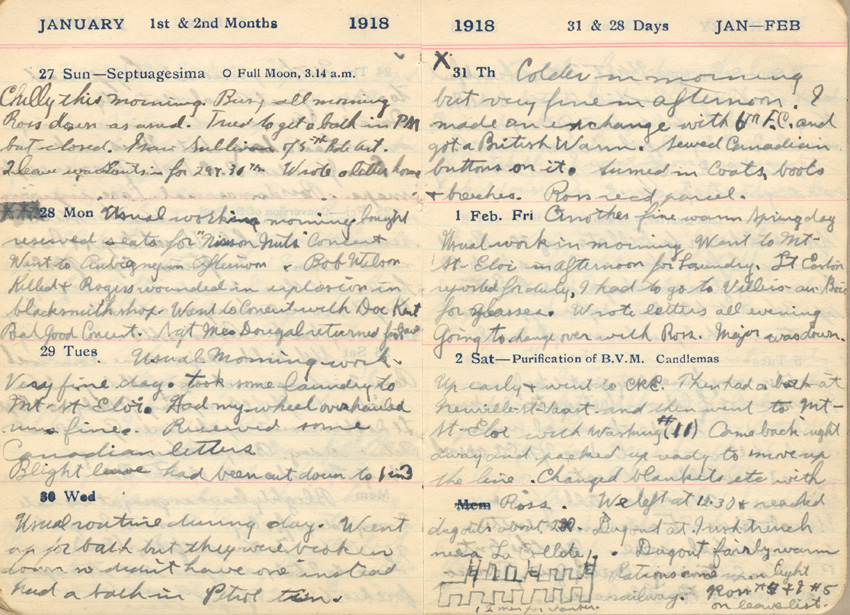 JANUARY 1st & 2nd Months 1918
27 Sun—Septuagesima O Full Moon, 3.14 a.m.
Chilly this morning. Busy all morning
Ross down as usual. Tried to get a bath in PM
but closed. Sullivan of 5th Art.
2 leave in for 29th 30th. Wrote a letter home
28 Mon Usual working morning bought
reserved seats for "Nuts" Concert
Went to Aubigny in afternoon. Bob Wilson
Killed & Rogers wounded in explosion in
blacksmith shop. Went to Concert with Doc Kent
Good Concert. Sgt MacDougal returned
29 Tues. Usual Morning work.
Very fine day. took some laundry to
Mt-St-Eloi. Had my wheel overhauled
runs fine. Received some
Canadian letters
Blight leave had been cut down to 1 in 3
30 Wed
Usual routine during day. Went
up for bath but they were broken
down so didn't have one instead
had a bath in Petrol tin.
1918 31 & 28 Days JAN—FEB
X
31 Th Colder in morning
but very fine in afternoon. I
made an exchange with and
got a British Warm. Sewed Canadian
buttons on it. Turned in Coats, boots
& breeches. Ross recd parcel.
1 Feb. Fri Another fine warm spring day
Usual work in morning. Went to Mt-
St-Eloi in afternoon for Laundry. Lt Easton
reported for duty, I had to go to Villers-au-Bois
for glasses. Wrote letters all evening
Going to change over with Ross. Major was down.
2 Sat—Purification of B.V.M. Candlemas
Up early & went to Then had a bath at
Neuville-St-Vaast and then went to Mt-
St-Eloi with Washing #(11) Came back right
away and packed up ready to move up
the line. Changed blankets etc with
Mem Ross. We left at 12.30 & reached
dugouts about Dugout at Irish trench
near La Collote. Dugout fairly warm
Rations come up on light
railway. Ross
on leave list.